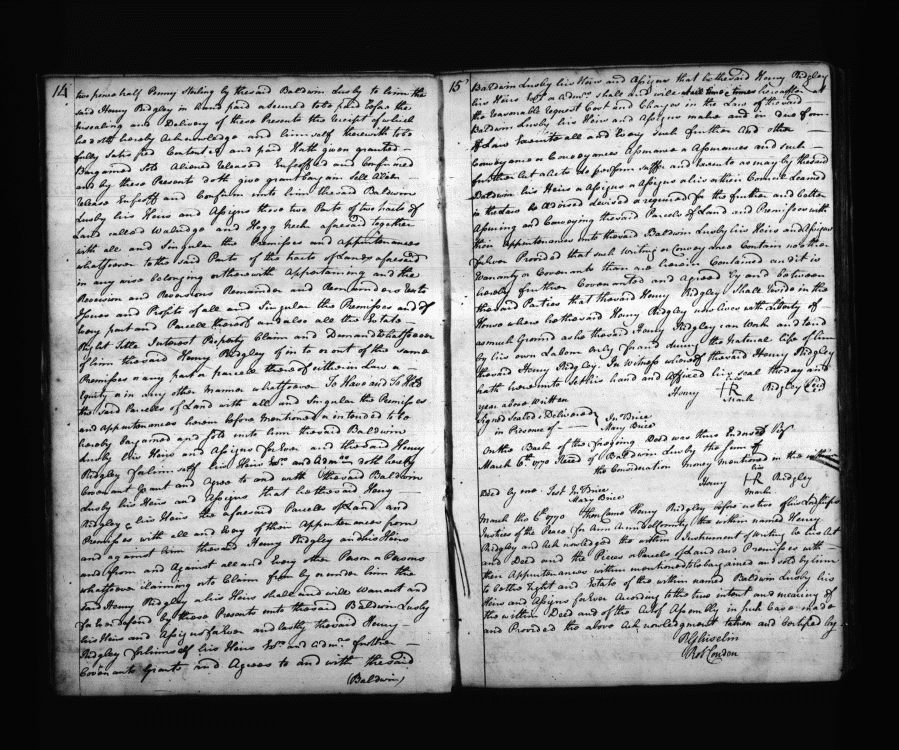 14
two pence half Penny sterling by the said Baldwin Lusby to him the
said Henry Ridgley in hand paid assumed to be paid before the
Ensealing and Delivery of these Presents the Receipt of which
he doth hereby Acknowledge and himself therewith to be
fully Satisfied Contented and paid Hath given granted
Bargained Sold Aliened Released Enfeoffed and Confirmed
and by these Presents doth give grant bargain Sell Alien
Release Enfeoff and Confirm unto him the said Baldwin
Lusby his Heirs and Assigns those two Parts of two tracts of
Land called Walnidge and Hogg Neck aforesaid together
with all and Singular the Premisses and appurtenances
whatsoever to the said Parts of the tracts of Lands aforesaid
in any wise belonging or therewith Appertaining and the
Reversion and Reversions Remainder and Remainders Rents
Issues and Profits of all and Singular the Premisses and of
every part and Parcell thereof and also all the Estate
Right Title Interest Property Claim and Demand whatsoever
of him the said Henry Ridgley of in to or out of the same
Premisses or any part or parcell thereof either in Law or
Equity or in any other manner whatsoever To Have and To Hold
the said Parcells of Land with all and Singular the Premisses
and appurtenances herein before Mentioned or intended to be
hereby Bargained and Sold unto him the said Baldwin
Lusby his Heirs and Assigns forever and the said Henry
Ridgley for himself his Heirs Exrs. and Admrs. doth hereby
Covenant Grant and Agree to and with the said Baldwin
Lusby his Heirs and Assigns that he the said Henry
Ridgley & his Heirs the aforesaid Parcells of Land and
Premisses with all and every of their Appurtenances from
and against him the said Henry Ridgley and his Heirs
and from and Against all and every other Person or Persons
whatsoever claiming or to Claim from by or under him the
said Henry Ridgley or his Heirs shall and will Warrant and
forever Defend by these Presents unto the said Baldwin Lusby
his Heirs and Assigns forever and lastly the said Henry
Ridgley for himself his Heirs Exrs. and Admrs. further
Covenants Grants and Agrees to and with the said
(Baldwin)
15
Baldwin Lusby his Heirs and Assigns that he the said Henry Ridgley
his Heirs Exrs. or Admrs. shall and will at all times hereafter at
the reasonable request Cost and Charges in the Law of the said
Baldwin Lusby his Heirs and Assigns make and in due form
of Law Execute all and every such further and other
Conveyance or Conveyances Assurance or Assurances and such
further Act or Acts do perform suffer and Execute as may by the said
Baldwin his Heirs or Assigns or his or their Council Learned
in the Law be Advised Devised or required for the further and better
Assuring and Conveying the said Parcels of Land and Premisses with
their Appurtenances unto the said Baldwin Lusby his Heirs and Assigns
forever Provided that such Writing or Conveyance Contain no other
Warranty or Covenants than are herein Contained and it is
hereby further Covenanted and agreed by and between
the said Parties that the said Henry Ridgley Shall reside in the
House where he the said Henry Ridgley now lives with Liberty of
as much Ground as he the said Henry Ridgley can Work and tend
by his own Labour only for and during the Natural life of him
the said Henry Ridgley. In Witness whereof the said Henry Ridgley
hath hereunto set his hand and Affixed his seal the day and
year above Written Henry HR Ridgley Seal
Mark
Signed Sealed & Delivered
in Presence of
Jno. Brice
Mary Brice
On the Back of the foregoing Deed was thus Endorsed Viz.
March 6th. 1770 Rced of Baldwin Lusby the sum of
the Consideration Money mentioned in the within
his
Henry HR Ridgley
Mark
Deed by me. Test Jno. Brice
Mary Brice
March this 6th 1770 then Came Henry Ridgley before us two of his Lordships
Justices of the Peace for Ann Arundel County the within named Henry
Ridgley and Acknowledged the within Instrument of Writing to be his Act
and Deed and the Pieces or Parcels of Land and Premisses with
their Appurtenances within mentioned to be bargained and sold by him
to be the Right and Estate of the within named Baldwin Lusby his
Heirs and Assigns forever According to the true intent and meaning of
the within Deed and of the Act of Assembly in such Case made
and Provided the above Acknowledgment taken and Certified by
R Ghiselin
Rob Couden